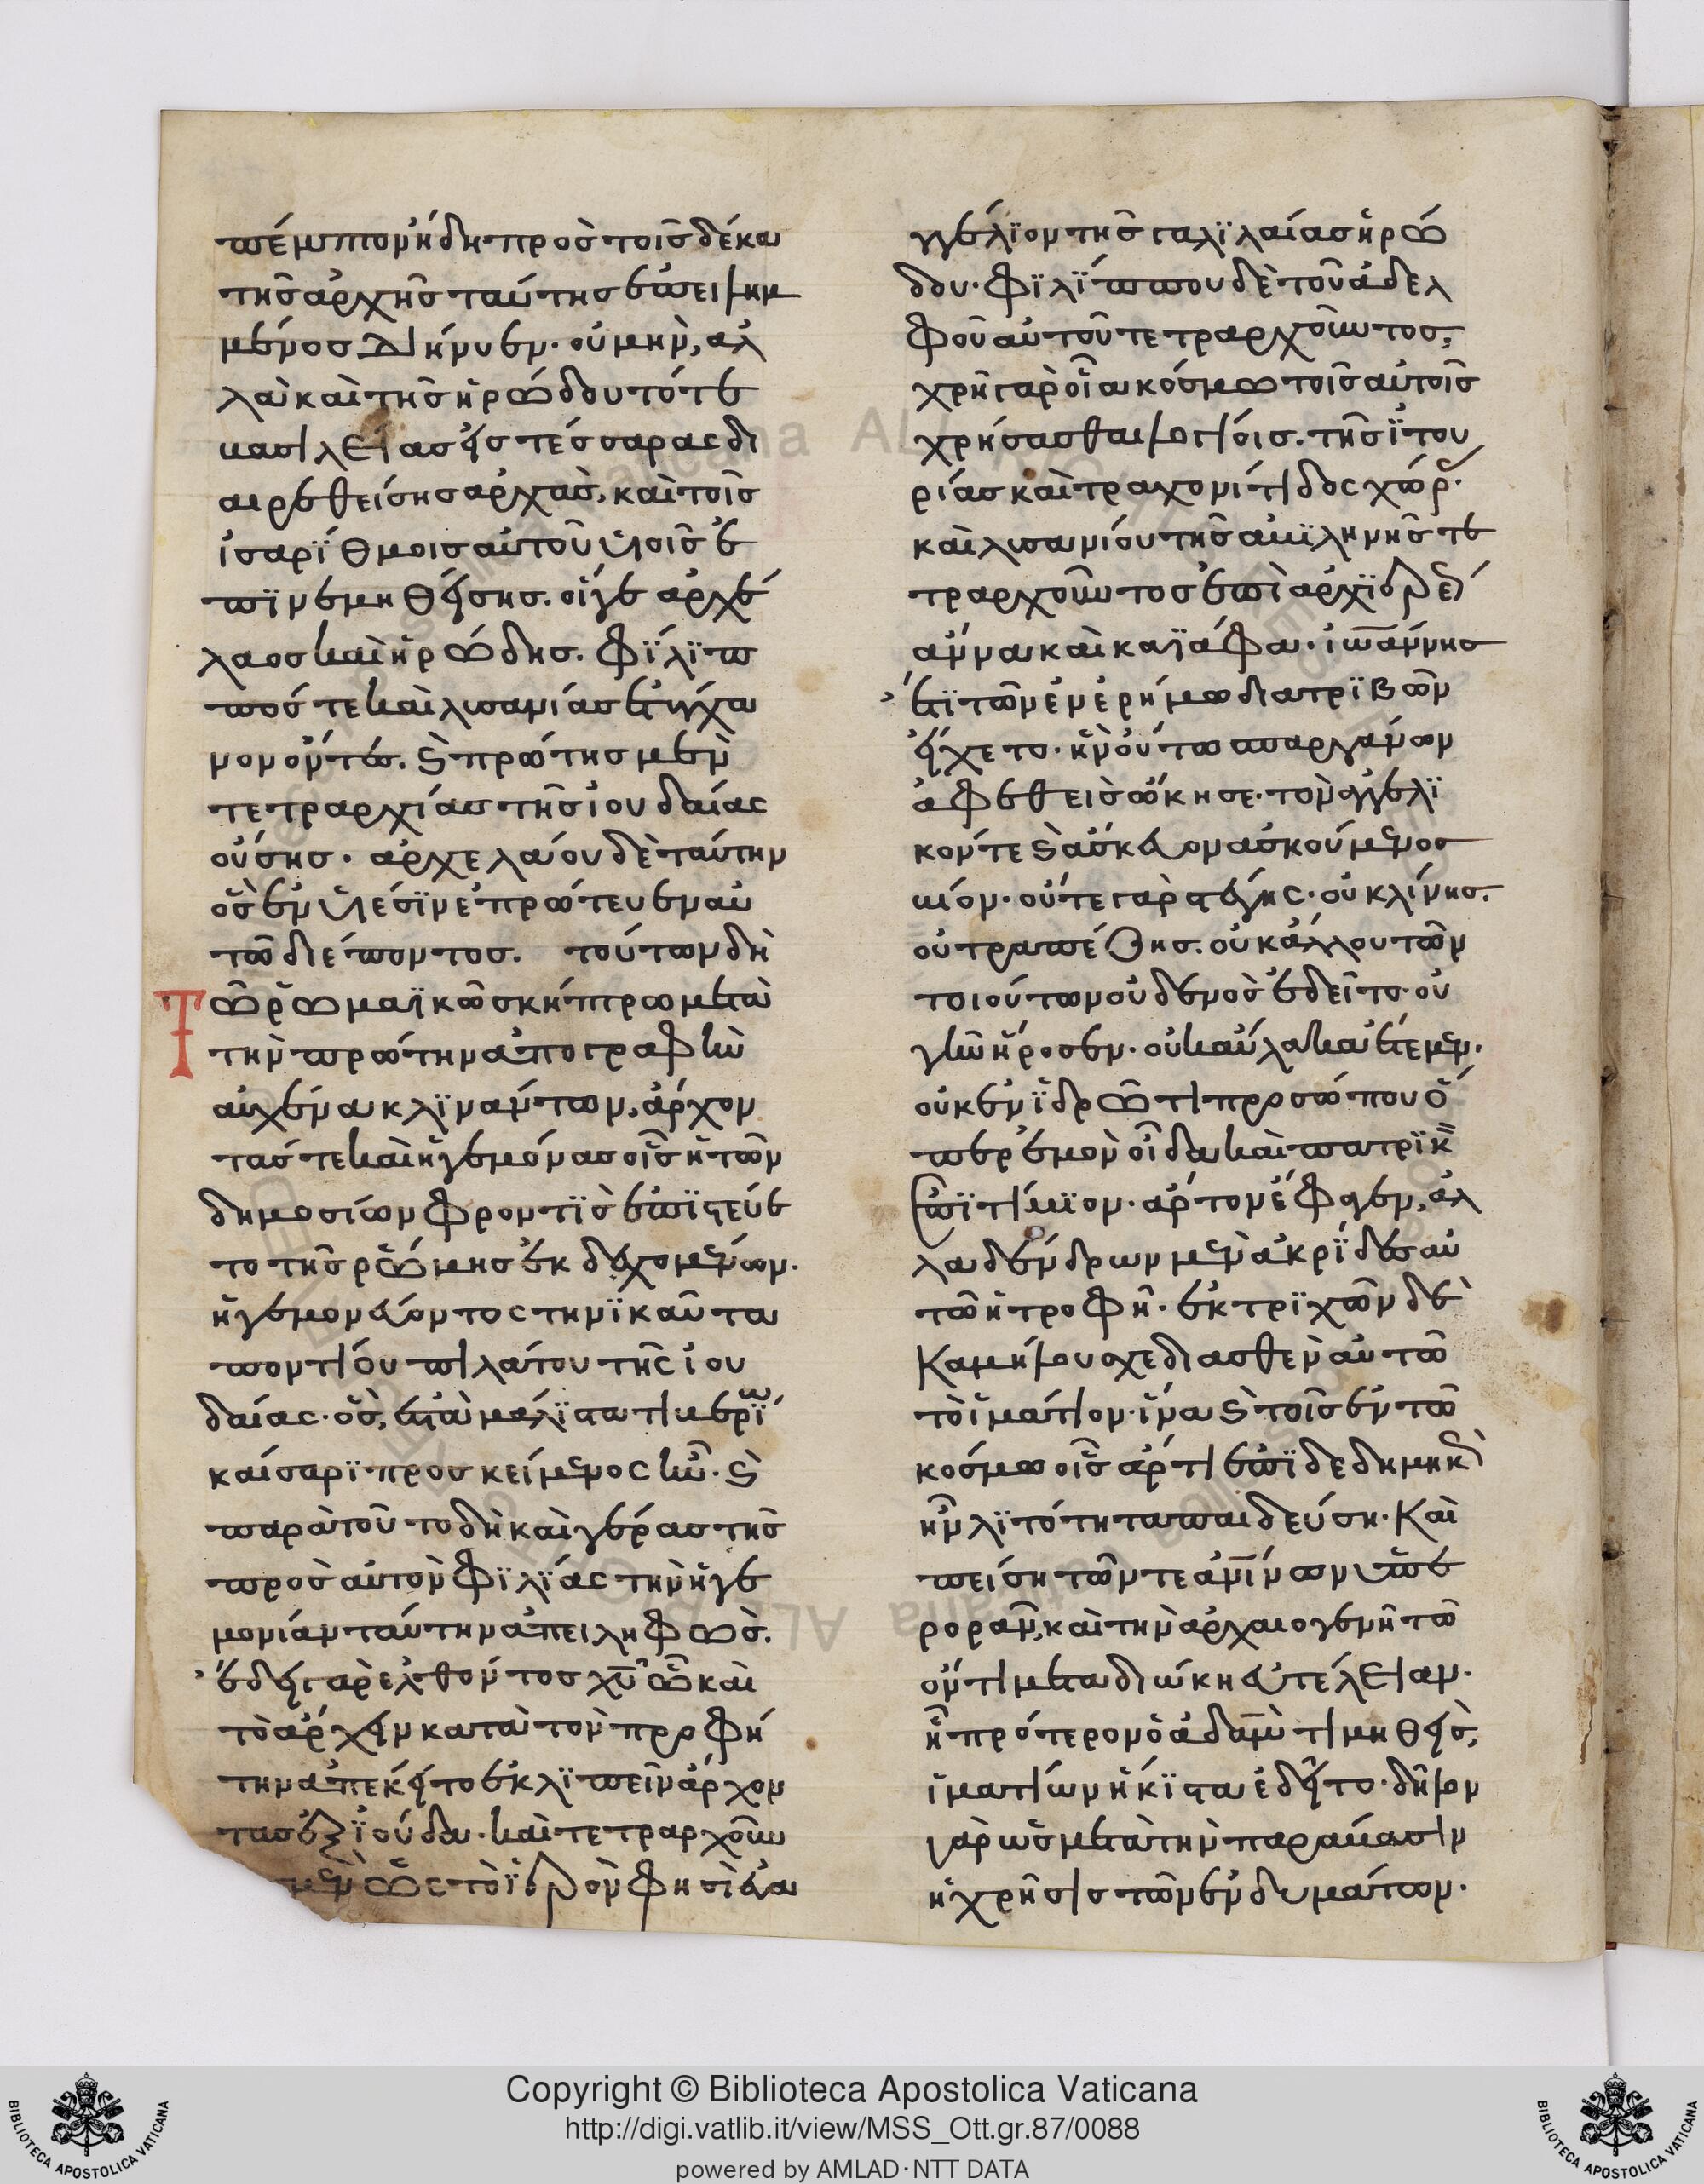 πέμπον ἤδη πρὸς τοῖς δέκα
τῆς ἀρχῆς ταύτης ἐπειλημ
μένος διήνυεν· οὐ μὴν, ἀλ
λὰ καὶ τῆς ἡρώδου τότε
βασιλείας εἰς τέσσαρας δι
αιρεθείσης ἀρχὰς, καὶ τοῖς
ἰσαρίθμοις αὐτοῦ υἱοῖς ἐ
πϊνεμηθείσης. οἵγε ἀρχέ
λαος καὶ ἡρώδης. φίλιπ
πός τε καὶ λυσανίας ἐτύγχα
νον ὄντως. καὶ πρώτης μὲν
τετραρχίας τῆς ἰουδαίας
οὔσης· ἀρχελάου δὲ ταύτην
ὃς ἐν υἱέσϊν ἐπρώτευεν αὐ
τῶ διέποντος. τούτων δὴ
Τῶ ῥωμαϊκῶ σκήπτρω μετὰ
τὴν πρώτην ἀπογραφὴν
αὐχένα κλϊνάντων, ἄρχον
τάς τε καὶ ἡγεμόνας οἷς ἡ τῶν
δημοσίων φροντὶς ἐπϊστεύε
το τῆς ῥώμης ἐκδεχομένων.
ἡγεμονεύοντος τηνϊκαῦτα
ποντίου πιλάτου τῆς ἰου
δαίας· ὃς, ἐπεὶ μάλϊστα τιβερίω
καίσαρϊ προσκείμενος ἦν· καὶ
παρὰ τοῦτο δὴ καὶ γέρας τῆς
πρὸς αὐτὸν φϊλϊάς τὴν ἡγε
μονίαν ταύτην ἀπειληφὼς.
ἔδει γὰρ ἐλθόντος χῦ ὧ καὶ
τὸ ἄρχειν κατὰ τὸν προφή
την ἀπέκειτο ἐκλϊπεῖν ἄρχον
τας ἐξ ἰούδα· καὶ τετραρχοῦν
μὲν ὡς τὸ ἱερὸν φησὶ εὐα
γγέλϊον τῆς γαλϊλαίας ἡρώ
δου· φϊλίππου δὲ τοῦ ἀδελ
φοῦ αὐτοῦ τετραρχοῦντος,
χρὴ γὰρ οἷα κόσμω τοῖς αὐτοῖς
χρήσασθαι λογίοις. τῆς ἰτου
ρίας καὶ τραχονίτιδος χώρας·
καὶ λυσανίου τῆς ἀβϊληνῆς τε
τραρχοῦντος ἐπὶ ἀρχϊερέων
ἄννα καὶ καϊάφα· ἰωάννης
ἔτϊ τῶν ἐν ἐρήμω διατρϊβῶν
εἴχετο· ἣν οὕτω σπαργάνων
ἀφεθεὶς ᾤκησε· τὸν ἀγγελϊ
κόν τε καὶ ἄσκευον ἀσκούμενος
βίον· οὔτε γὰρ στέγης· οὐ κλίνης.
οὐ τραπέζης. οὐκ ἄλλου τῶν
τοιούτων οὐδενὸς ἐδεῖτο· οὐ
γῆν ἤροσεν· οὐκ αὔλακα ἔτεμεν.
οὐκ ἐν ἱδρῶτι προσώπου ὅ
περ ἐμὸν οἶδα καὶ πατρϊκὸν
ἐπϊτίμϊον· ἄρτον ἔφαγεν, ἀλ
λὰ δένδρων μὲν ἀκρίδες αὐ
τῶ ἡ τροφῆ. ἐκ τρϊχῶν δὲ
καμήλου σχεδιασθὲν αὐτῶ
τὸ ἱμάτιον· ἵνα καὶ τοῖς ἐν τῶ
κόσμω οἷς ἄρτι ἐπϊδεδημήκει
ἦν λϊτότητα παιδεύση· καὶ
πείση τῶν τε ἀνίνων ὑπε
ρορᾶν, καὶ τὴν ἀρχαιογενῆ τῶ
ὄντι μεταδιώκειν εὐτέλειαν.
ἧ πρότερον ὁ ἀδαμ τιμηθεὶς,
ἱματίων ἥκϊστα ἐδεῖτο· δῆλον
γὰρ ὡς μετὰ τὴν παράβασιν
ἡ χρῆσις τῶν ἐνδυμάτων.
Copyright © Biblioteca Apostolica Vaticana
http://digi.vatlib.it/view/MSS_Ott.gr.87/0088
powered by AMLAD·NTT DATA
BIBLIOTECA APOSTOLICA VATICANA
BIBLIOTECA APOSTOLICA VATICANA